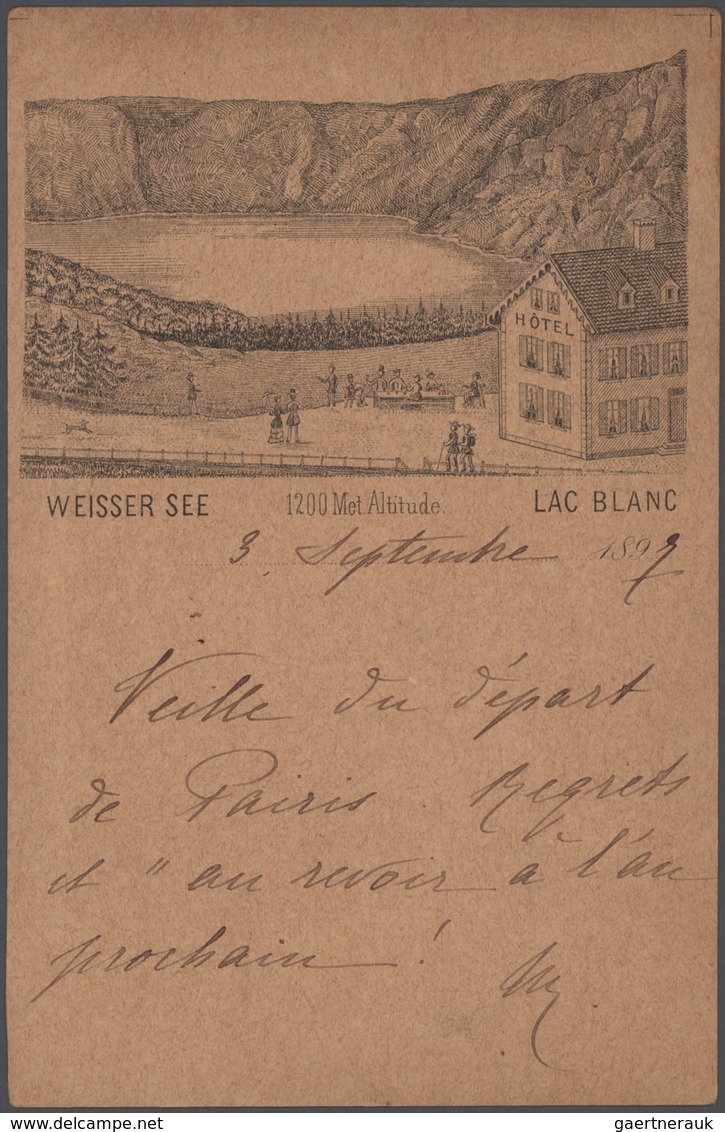 HÔTEL
WEISSER SEE 1200 Met. Altitude. LAC BLANC
3. Septembre 1897
Veille du départ
de Pairis. Regrets
et " au revoir à l'an
prochain !
gaertnerauk